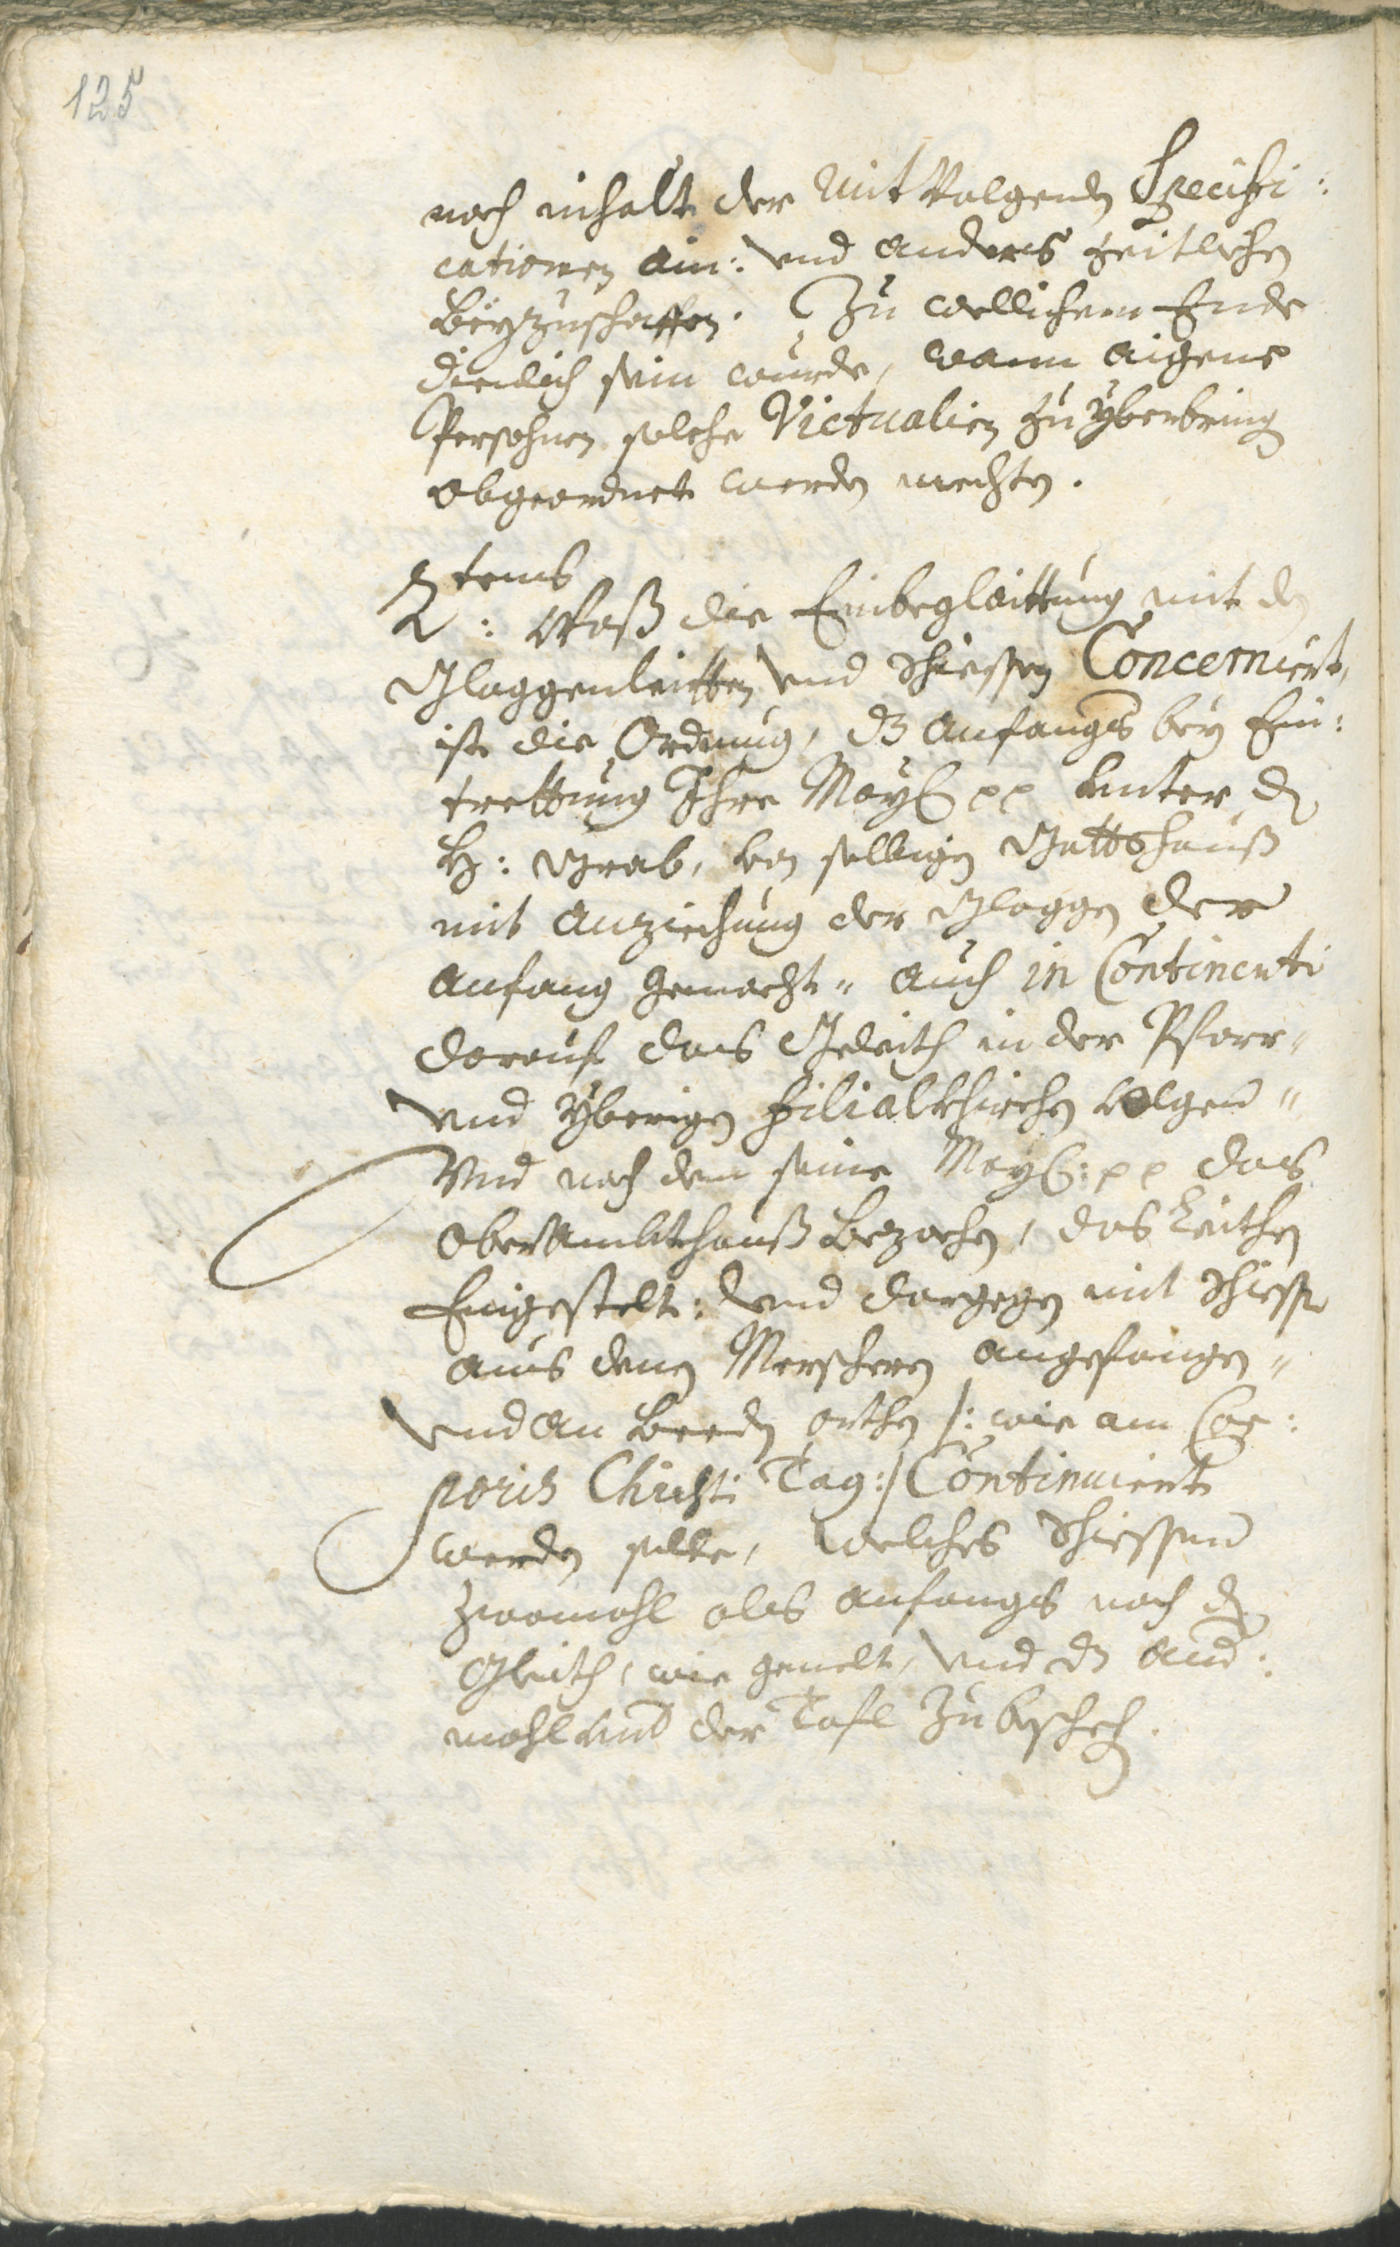 125
nach inhalt der mitvolgenden Specifi:
cationen ain: vnd anders zeitlichen
Beyzuschaffen. Zu wellichem Ende
dienlich sein wurde, wann aigene
Persohnen solche Victualien zu yberbring
abgeordnet werden mechten.
tens
2: Waß die Einbegleittung mit dn
Gloggenleitten vnd Schiessen Concerniert,
ist die Ordnung, dz anfangs bey Ein:
trettung Ihre May: pp vnter dz
H: Grab, von selbigen Gottshauß
mit Anziechung der Gloggen der
anfang gemacht" auch in Continenti
darauf das Geleith in der Pfarr"
vnd yberigen Filialkhirchen volgen"
Vnd nach dem seine May: pp das
oberambtshauß bezochen, das Leithen
Eingestelt: vnd dargegen mit Schiess
aus denen Merschern angefangen"
vnd an beeden orthen /: wie am Cor:
poris Christi Tag :/ Continuiert
werden solle, welches Schiessen
zwaymahl als anfangs nach dem
Gleith, wie gemelt, vnd dz and:
mahl vnd der Tafl zu beschech.